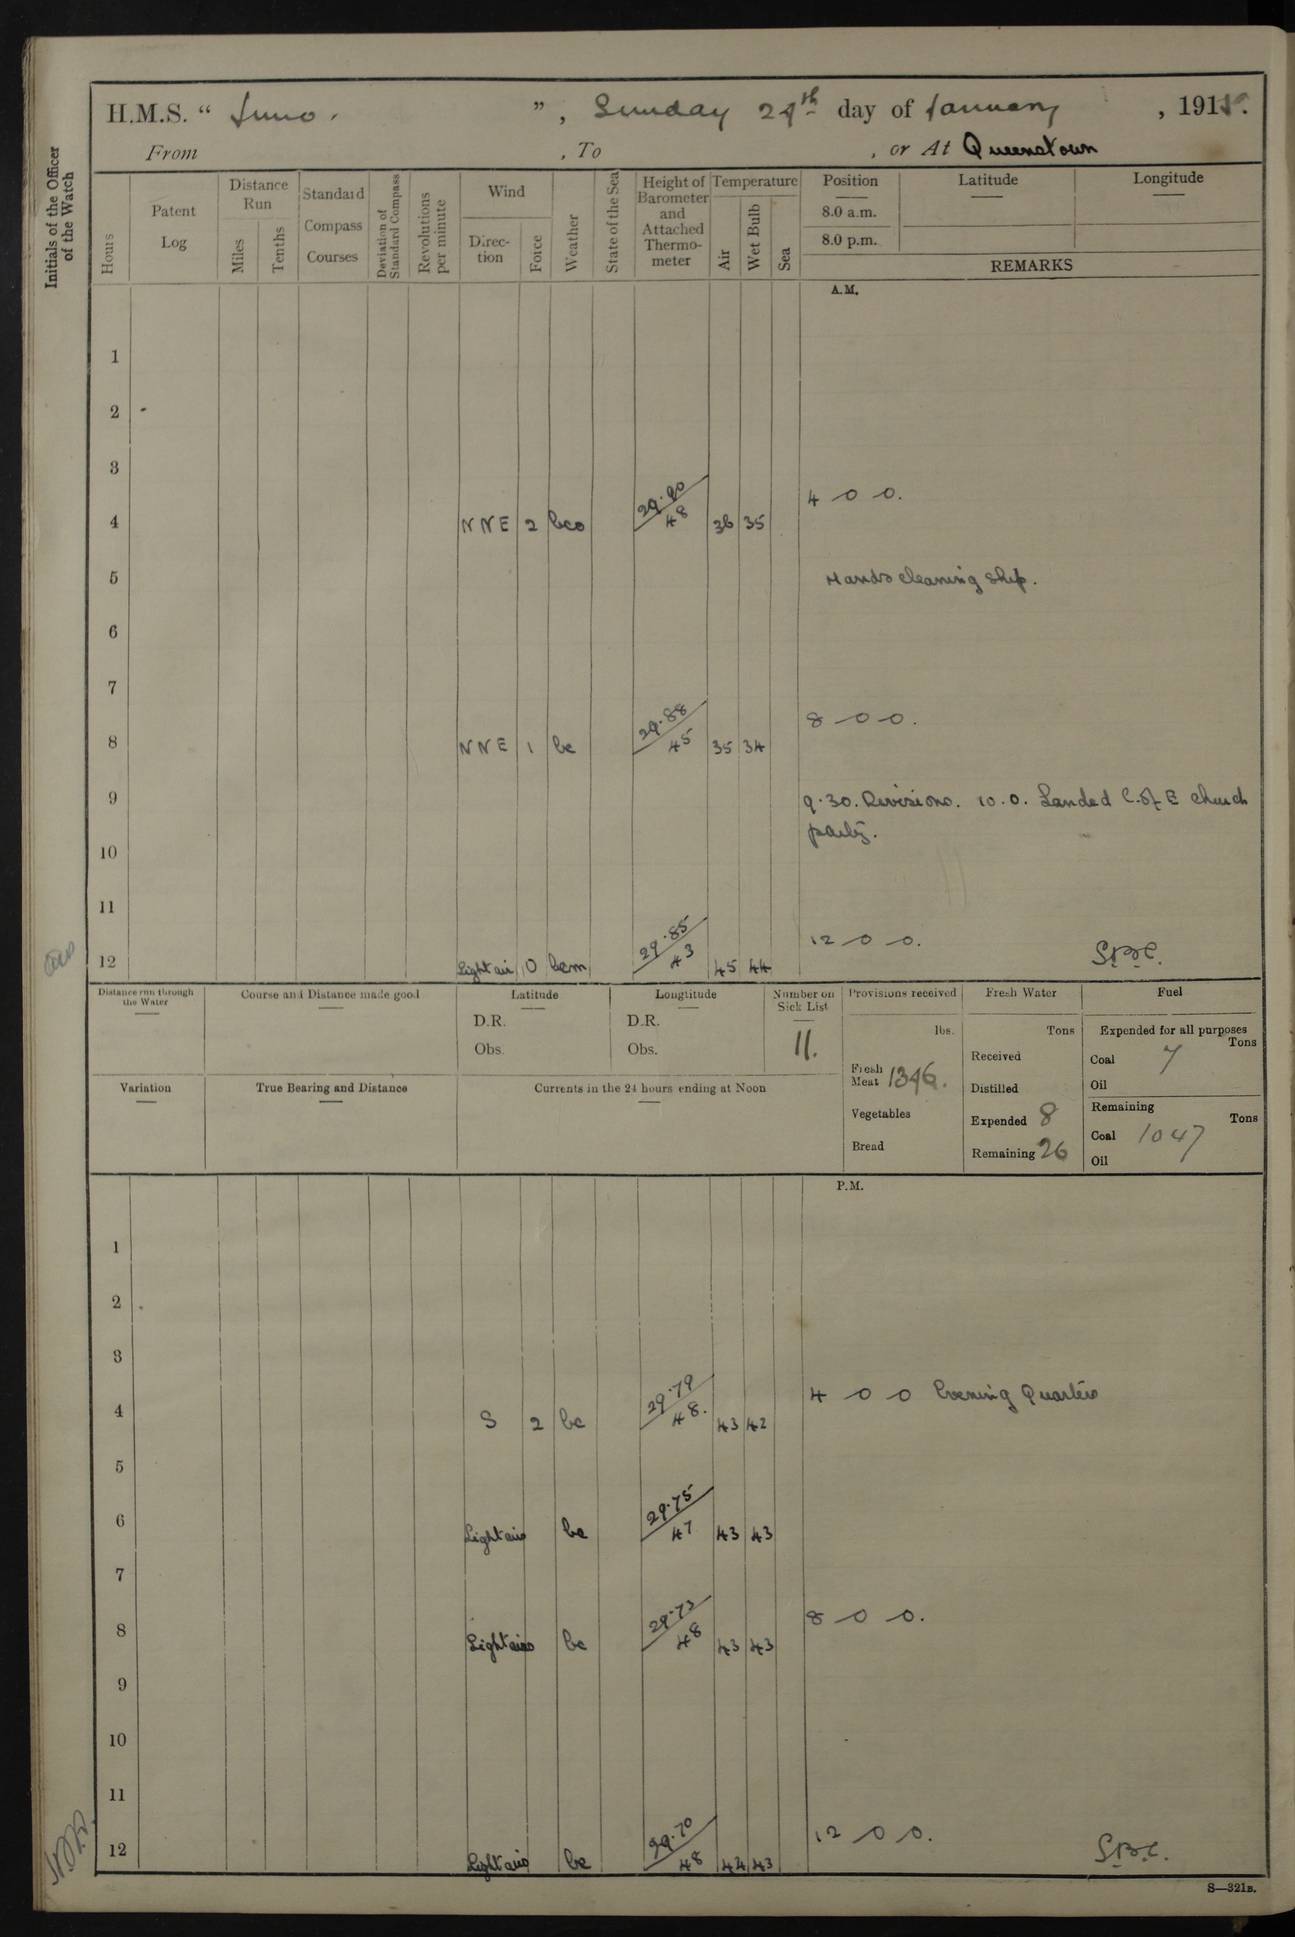 H.M.S. " Juno. ", Sunday 24th day of January, 1915.
From , To , or At Queenstown
Initials of the Officer of the Watch
Hours
Patent Log
Distance Run
Miles
Tenths
Standard Compass Courses
Deviation of Standard Compass
Revolutions per minute
Wind
Direction
Force
Weather
State of the Sea
Height of Barometer and Attached Thermometer
Temperature
Air
Wet Bulb
Sea
Position
8.0 a.m.
8.0 p.m.
Latitude
Longitude
REMARKS
A.M.
1
2
3
4 NNE 2 bco 29.90 48 36 35 4 0 0.
5 Hands cleaning ship.
6
7
8 NNE 1 bc 29.88 45 35 34 8 0 0.
9 9.30. Divisions. 10.0. Landed C. of E church
party.
10
11
12 Light air 0 bcm 29.85 43 45 44 12 0 0. S.B.C.
Distance run through the Water
Course and Distance made good
Latitude
D.R.
Obs.
Longtitude
D.R.
Obs.
Number on Sick List
11.
Provisions received
lbs.
Fresh Meat 1346.
Vegetables
Bread
Fresh Water
Tons
Received
Distilled
Expended 8
Remaining 26
Fuel
Expended for all purposes
Tons
Coal 7
Oil
Remaining
Tons
Coal 1047
Oil
Variation
True Bearing and Distance
Currents in the 24 hours ending at Noon
P.M.
1
2
3
4 S 2 bc 29.79 48. 43 42 4 0 0 Evening Quarters
5
6 Light airs bc 29.75 47 43 43
7
8 Light airs bc 29.73 48 43 43 8 0 0.
9
10
11
12 Light airs bc 29.70 48 44 43 12 0 0. S.B.C.
S—321B.